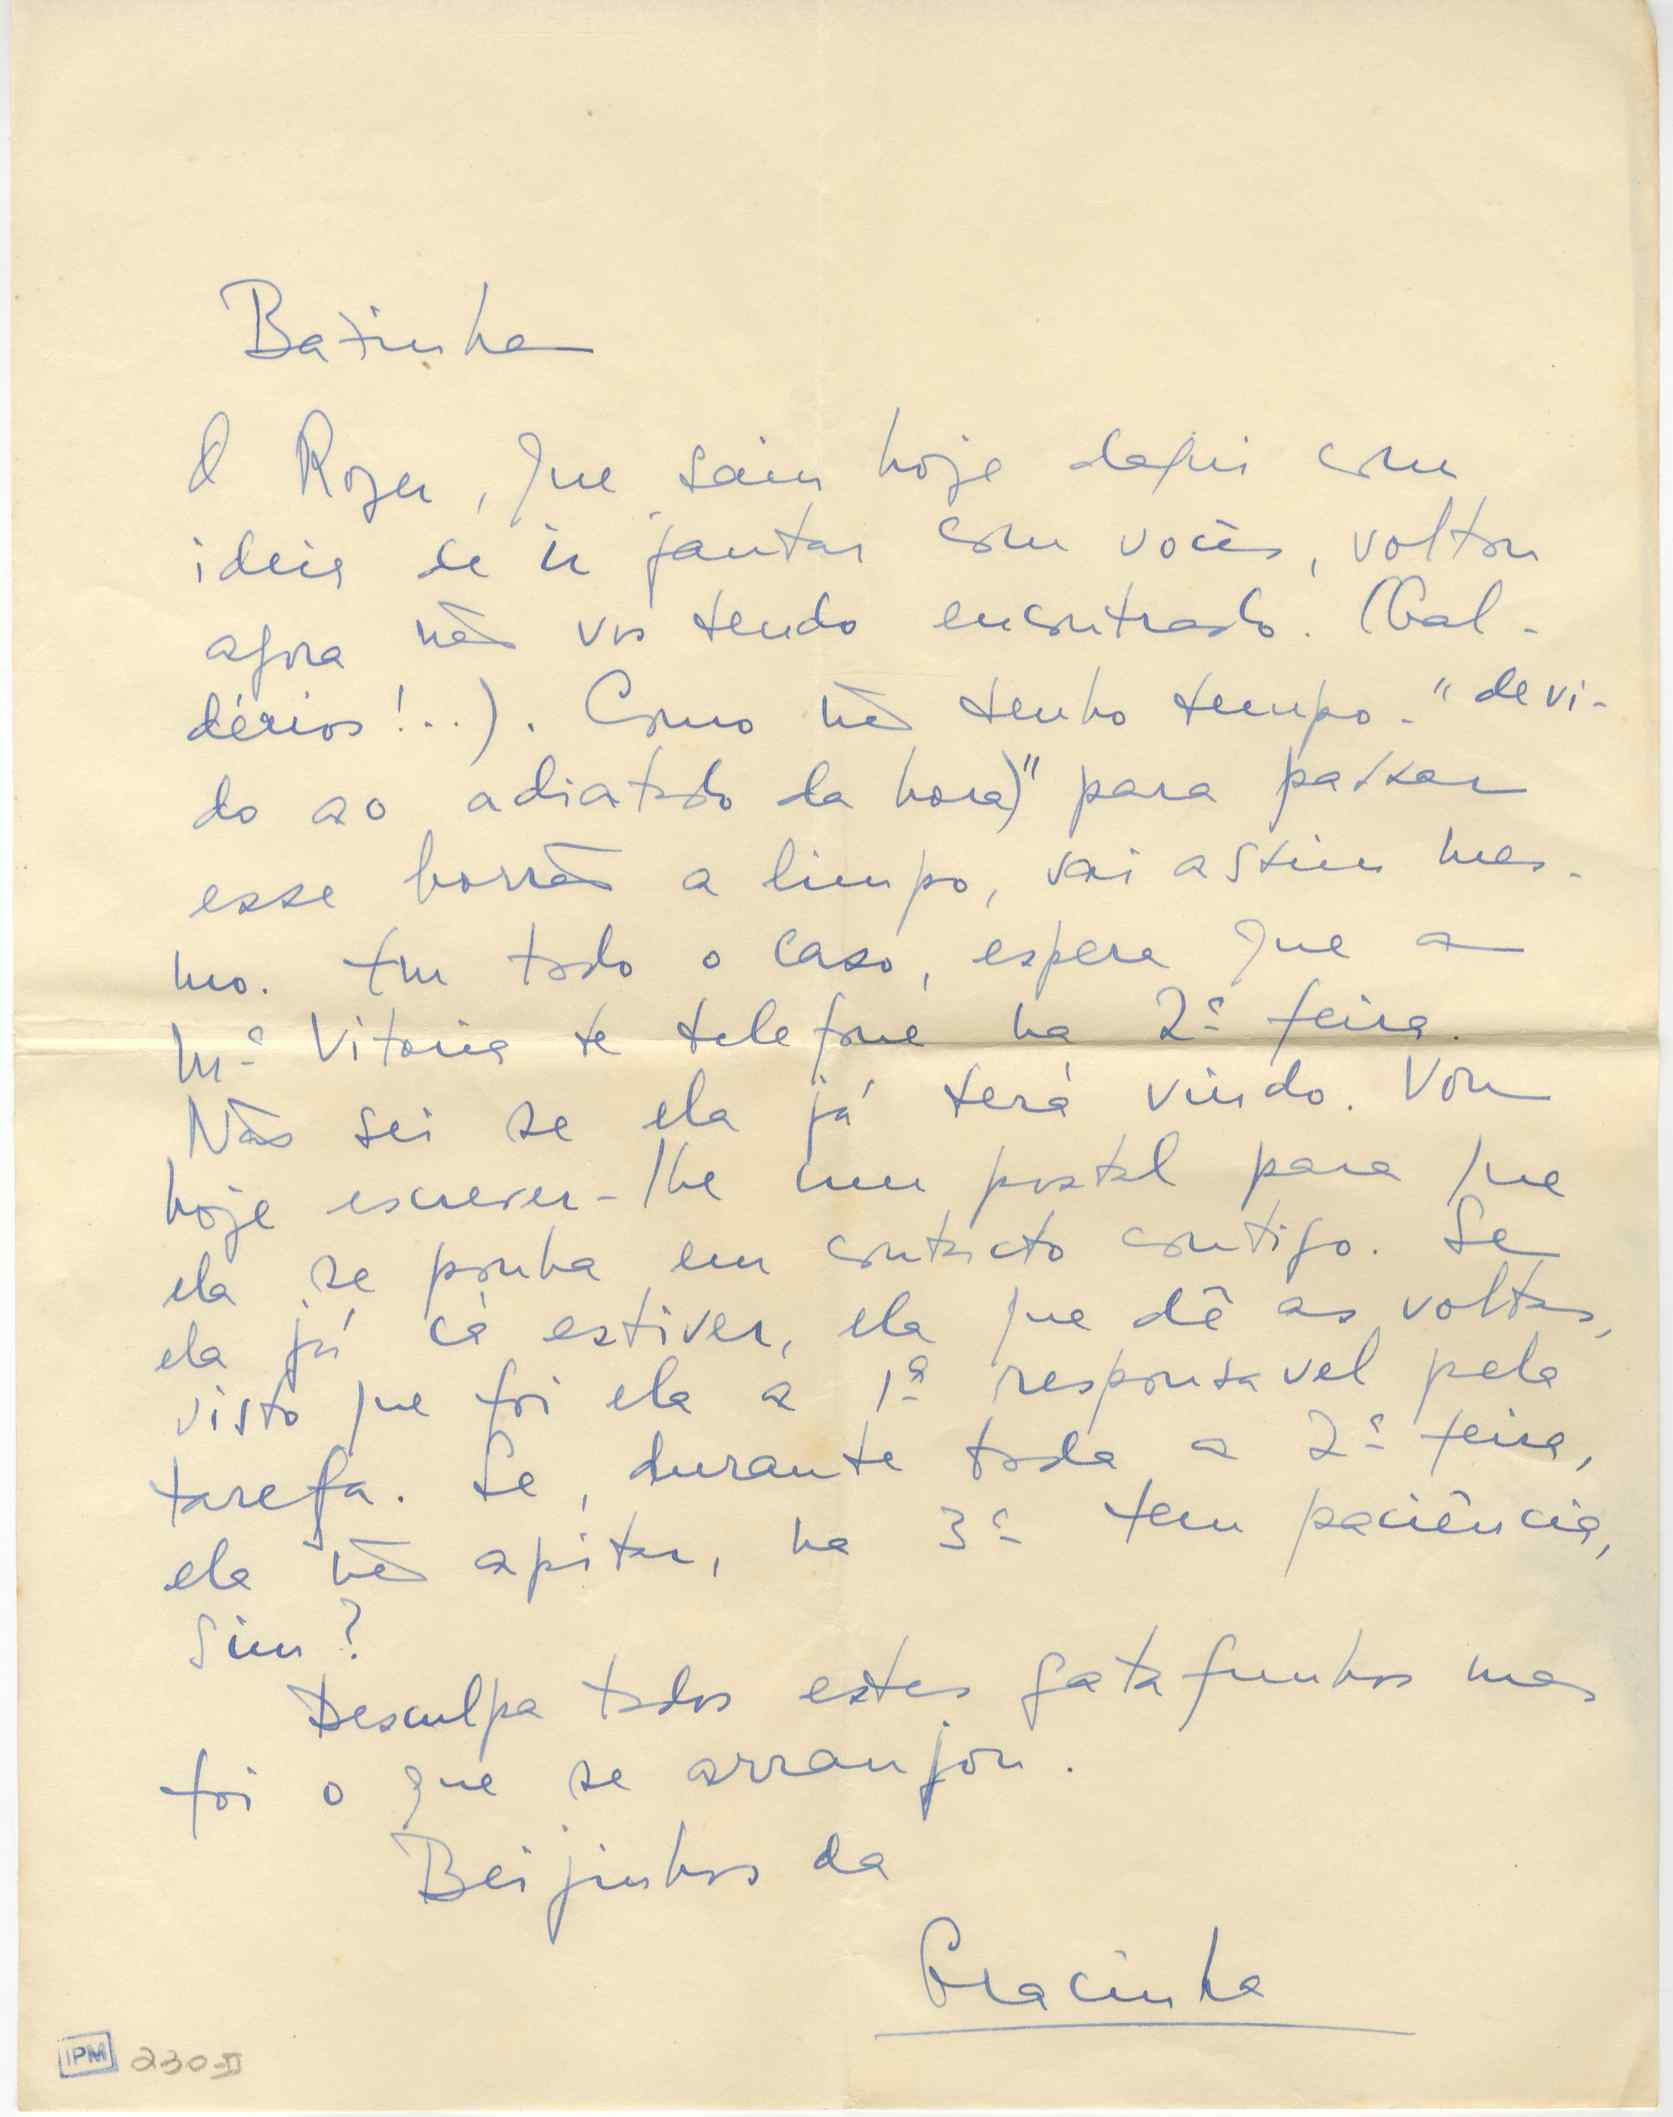 Batinha
O Roger, que saiu hoje daqui com
ideia de ir jantar com vocês, voltou
agora não vos tendo encontrado. (Gal-
dérios!..). Como não tenho tempo - "devi-
do ao adiatado da hora)" para passar
esse borrão a limpo, vai assim mes-
mo. Em todo o caso, espera que a
Mª Vitoria te telefone na 2ª feira.
Não sei se ela já terá vindo. Vou
hoje escrever-lhe um postal para que
ela se ponha em contacto contigo. Se
ela já cá estiver, ela que dê as voltas,
visto que foi ela a 1ª responsavel pela
tarefa. Se, durante toda a 2ª feira,
ela não apitar, na 3ª tem paciência,
sim?
Desculpa todos estes gatafunhos mas
foi o que se arranjou.
Beijinhos da
Gracinha
IPM 230-II